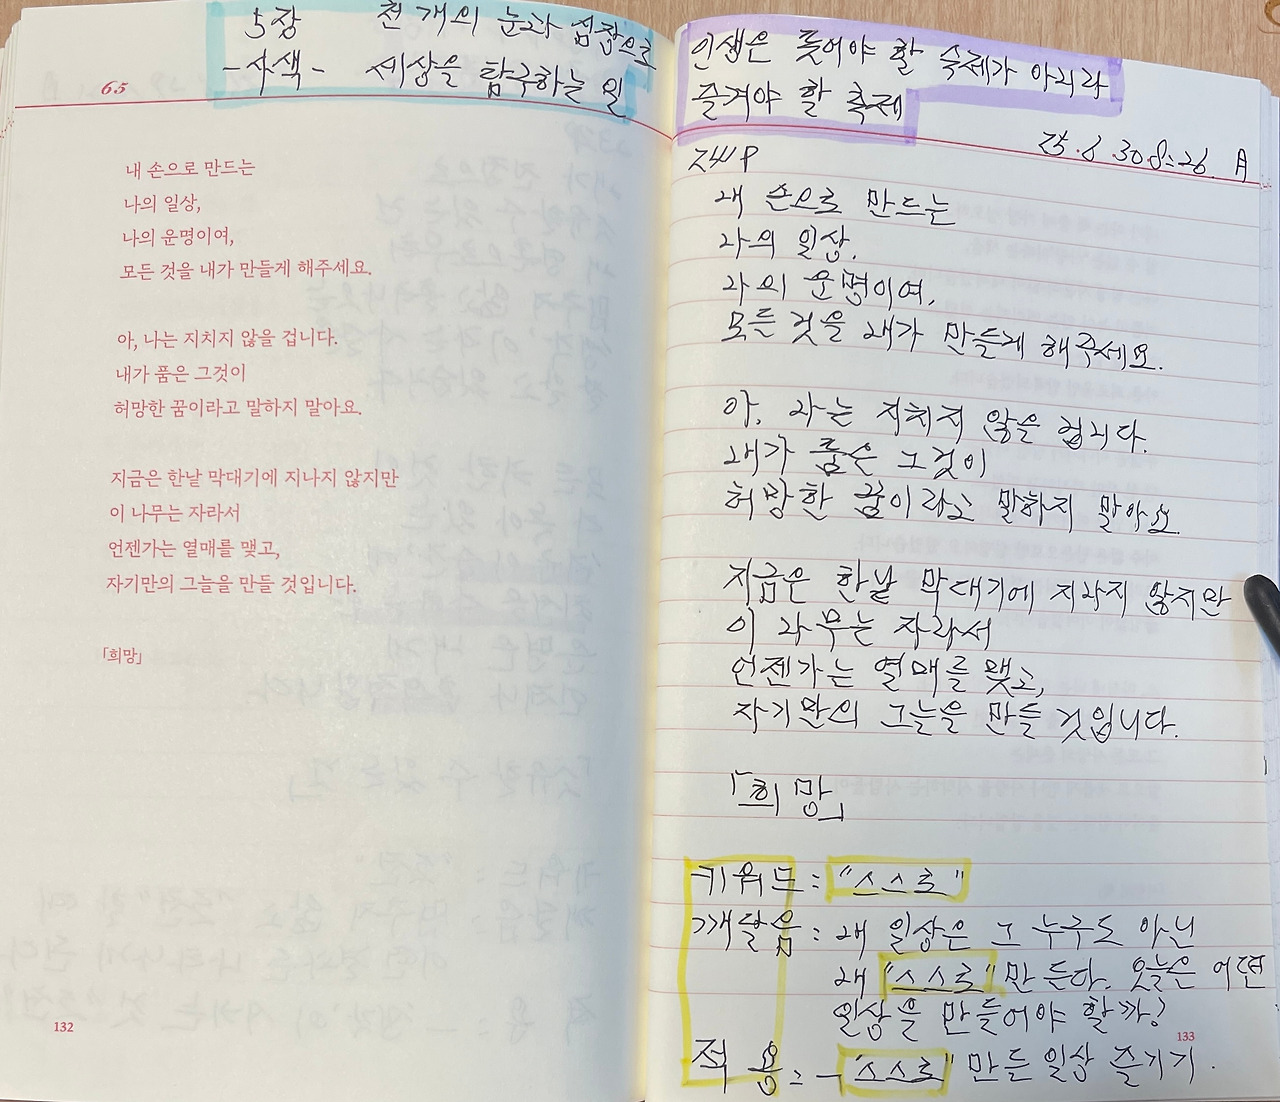 5장 천 개의 눈과 심장으로
-사색- 세상을 탐구하는 일
65
내 손으로 만드는
나의 일상,
나의 운명이여,
모든 것을 내가 만들게 해주세요.
아, 나는 지치지 않을 겁니다.
내가 품은 그것이
허망한 꿈이라고 말하지 말아요.
지금은 한낱 막대기에 지나지 않지만
이 나무는 자라서
언젠가는 열매를 맺고,
자기만의 그늘을 만들 것입니다.
「희망」
132
인생은 풀어야 할 숙제가 아니라
즐겨야 할 축제
25.6.30.8:26. 月
241P
내 손으로 만드는
나의 일상.
나의 운명이여,
모든 것을 내가 만들게 해주세요.
아, 나는 지치지 않을 겁니다.
내가 품은 그것이
허망한 꿈이라고 말하지 말아요
지금은 한낱 막대기에 지나지 않지만
이 나무는 자라서
언젠가는 열매를 맺고,
자기만의 그늘을 만들 것입니다.
「희망」
키워드 : "스스로"
깨달음 : 내 일상은 그 누구도 아닌
내 "스스로" 만든다. 오늘은 어떤
일상을 만들어야 할까?
133
적 용 : - "스스로" 만든 일상 즐기기.